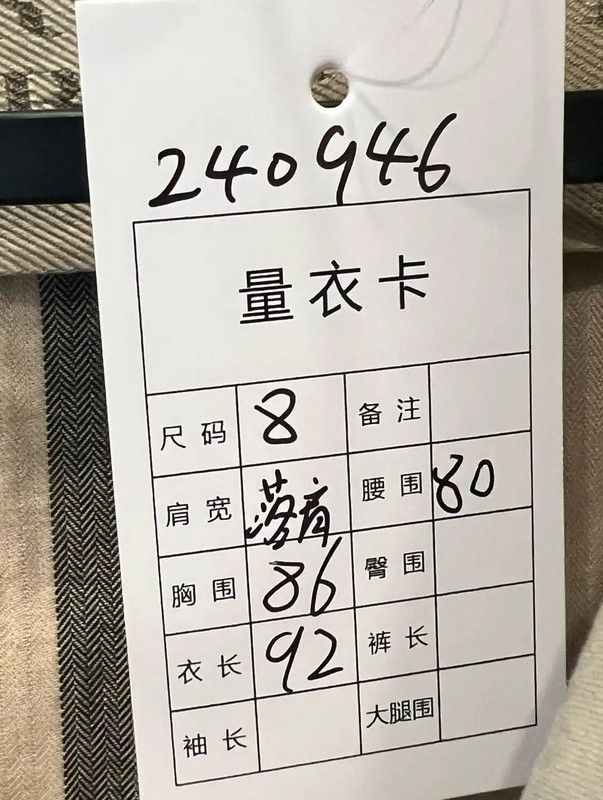 240946
量衣卡
尺码 8 备注
肩宽 落肩 腰围 80
胸围 86 臀围
衣长 92 裤长
袖长 大腿围